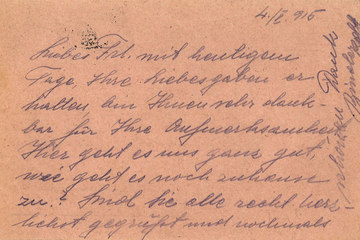 4./I. 915
Liebes Frl. mit heutigem
Tage, Ihre Liebesgaben er-
halten, bin Ihnen sehr dank-
bar für Ihre Aufmerksamkeit
Hier geht es uns ganz gut,
wie geht es noch zuhause
zu? Sind Sie alle recht herz-
lichst gegrüßt und nochmals
Dank